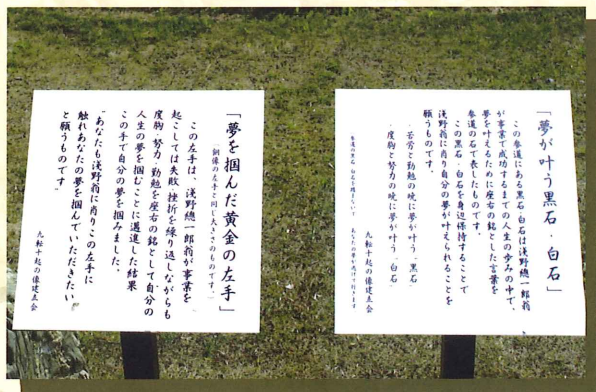 「夢が叶う黒石・白石」
この参道にある黒石・白石は浅野總一郎翁
が事業で成功するまでの人生の歩みの中で、
夢を叶えるために座右の銘とした言葉を
参道の石で表したものです。
この黒石・白石を身辺保持することで
浅野翁に肖り自分の夢が叶えられることを
願うものです。
・苦労と勤勉の暁に夢が叶う「黒石」
・度胸と努力の暁に夢が叶う「白石」
九転十起の像建立会
参道の黒石・白石を
あなたの夢が逃げて行きます
「夢を掴んだ黄金の左手」
(銅像の左手と同じ大きさのものです。)
この左手は、浅野總一郎翁が事業を
起こしては失敗・挫折を繰り返しながらも
度胸・努力・勤勉を座右の銘として自分の
人生の夢を掴むことに邁進した結果
この手で自分の夢を掴みました。
"あなたも浅野翁に肖りこの左手に
触れあなたの夢を掴んでいただきたい"
と願うものです"
九転十起の像建立会